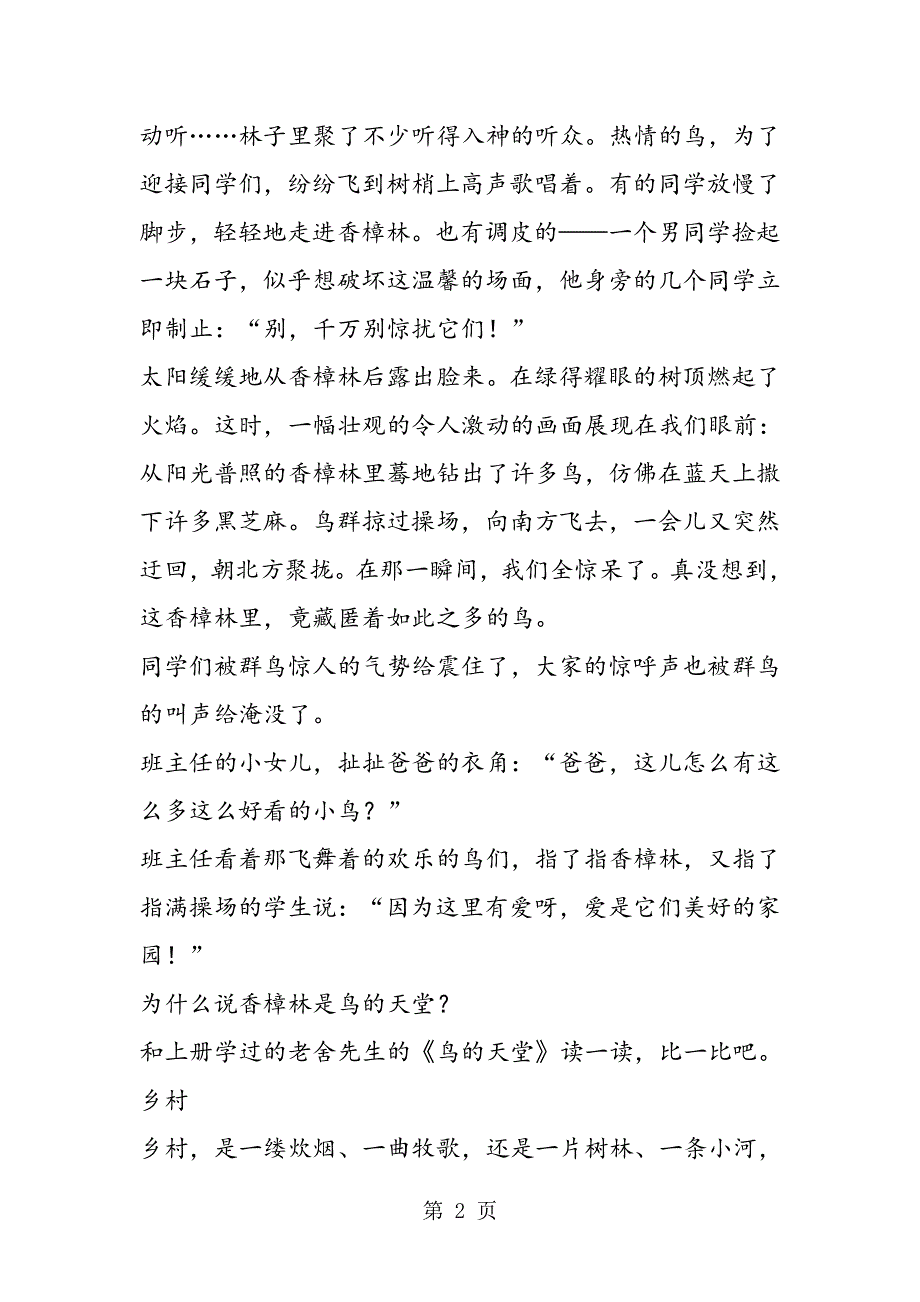 动听……林子里聚了不少听得入神的听众。热情的鸟，为了
迎接同学们，纷纷飞到树梢上高声歌唱着。有的同学放慢了
脚步，轻轻地走进香樟林。也有调皮的——一个男同学捡起
一块石子，似乎想破坏这温馨的场面，他身旁的几个同学立
即制止：“别，千万别惊扰它们！”
太阳缓缓地从香樟林后露出脸来。在绿得耀眼的树顶燃起了
火焰。这时，一幅壮观的令人激动的画面展现在我们眼前：
从阳光普照的香樟林里蓦地钻出了许多鸟，仿佛在蓝天上撒
下许多黑芝麻。鸟群掠过操场，向南方飞去，一会儿又突然
迂回，朝北方聚拢。在那一瞬间，我们全惊呆了。真没想到，
这香樟林里，竟藏匿着如此之多的鸟。
同学们被群鸟惊人的气势给震住了，大家的惊呼声也被群鸟
的叫声给淹没了。
班主任的小女儿，扯扯爸爸的衣角：“爸爸，这儿怎么有这
么多这么好看的小鸟？”
班主任看着那飞舞着的欢乐的鸟们，指了指香樟林，又指了
指满操场的学生说：“因为这里有爱呀，爱是它们美好的家
园！”
为什么说香樟林是鸟的天堂？
和上册学过的老舍先生的《鸟的天堂》读一读，比一比吧。
乡村
乡村，是一缕炊烟、一曲牧歌，还是一片树林、一条小河，
第 2 页